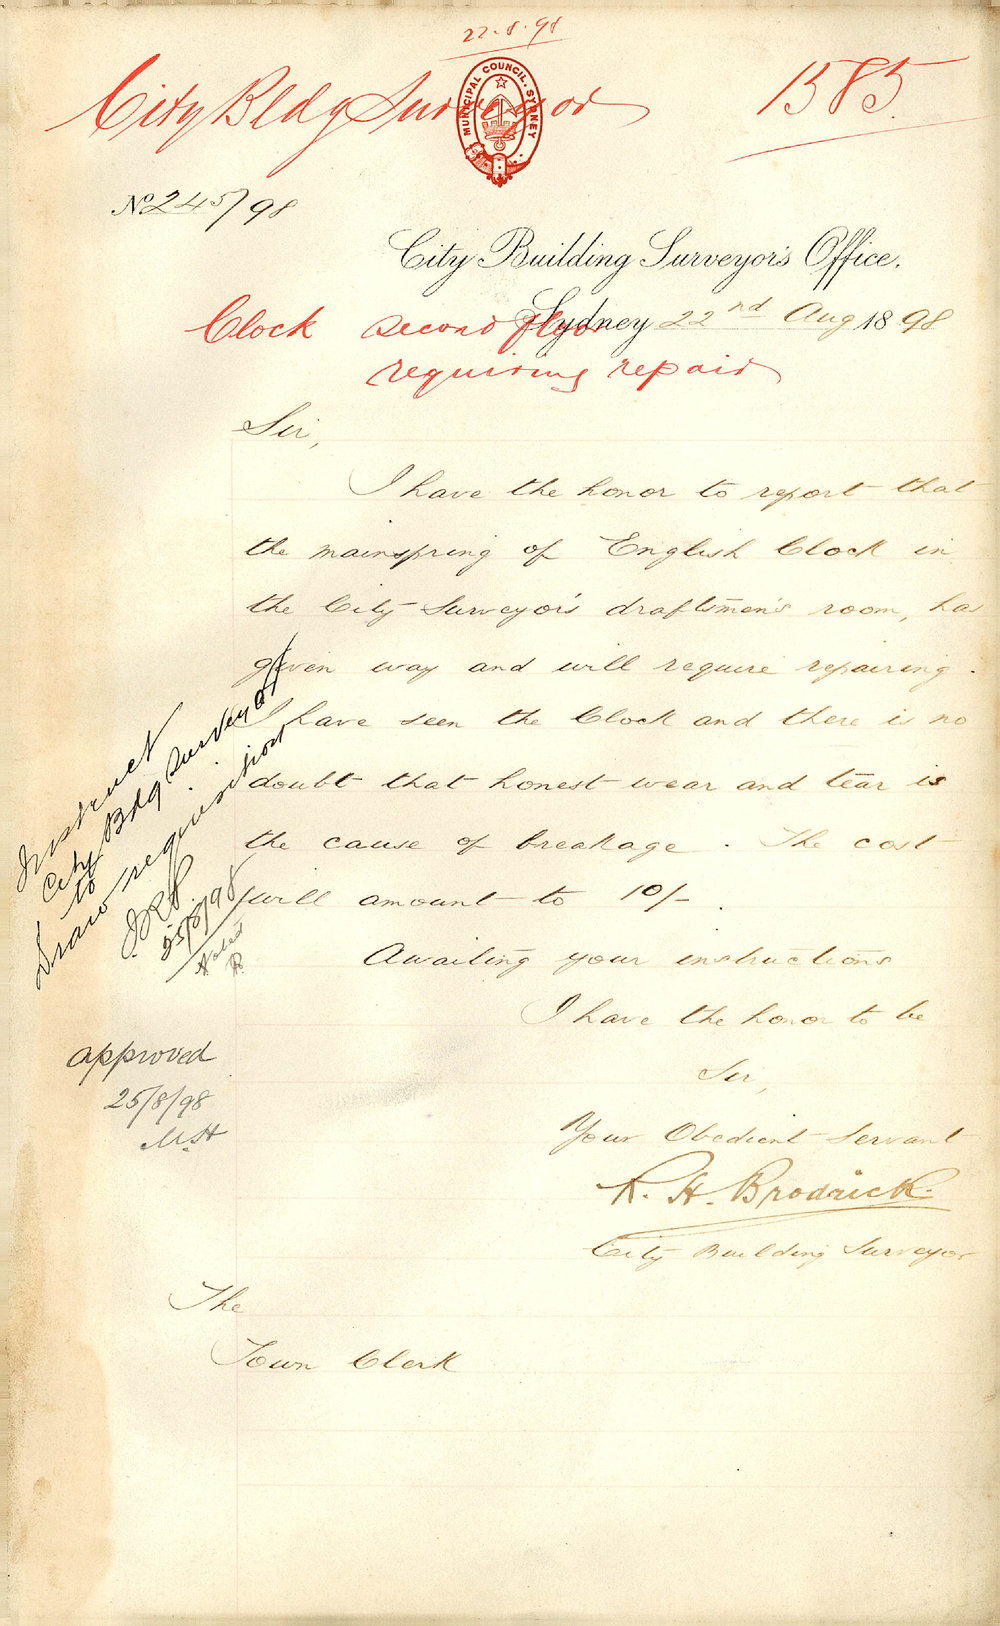 22.8.98
City Bldg Surveyor 1585.
MUNICIPAL COUNCIL. SYDNEY
No 245/98
City Building Surveyor's Office.
Sydney 22nd Aug 1898
Clock second floor
requiring repair
Sir,
I have the honor to report that
the mainspring of English Clock in
the City Surveyor's draftsmen's room, has
given way and will require repairing.
I have seen the Clock and there is no
doubt that honest wear and tear is
the cause of breakage. The cost
will amount to 10/-.
Awaiting your instructions
I have the honor to be
Sir,
Your Obedient Servant
R. H. Brodrick.
City Building Surveyor
The
Town Clerk
Instruct
City Bldg Surveyor
to
Draw requisition
25/8/98
Noted
approved
25/8/98
M.H